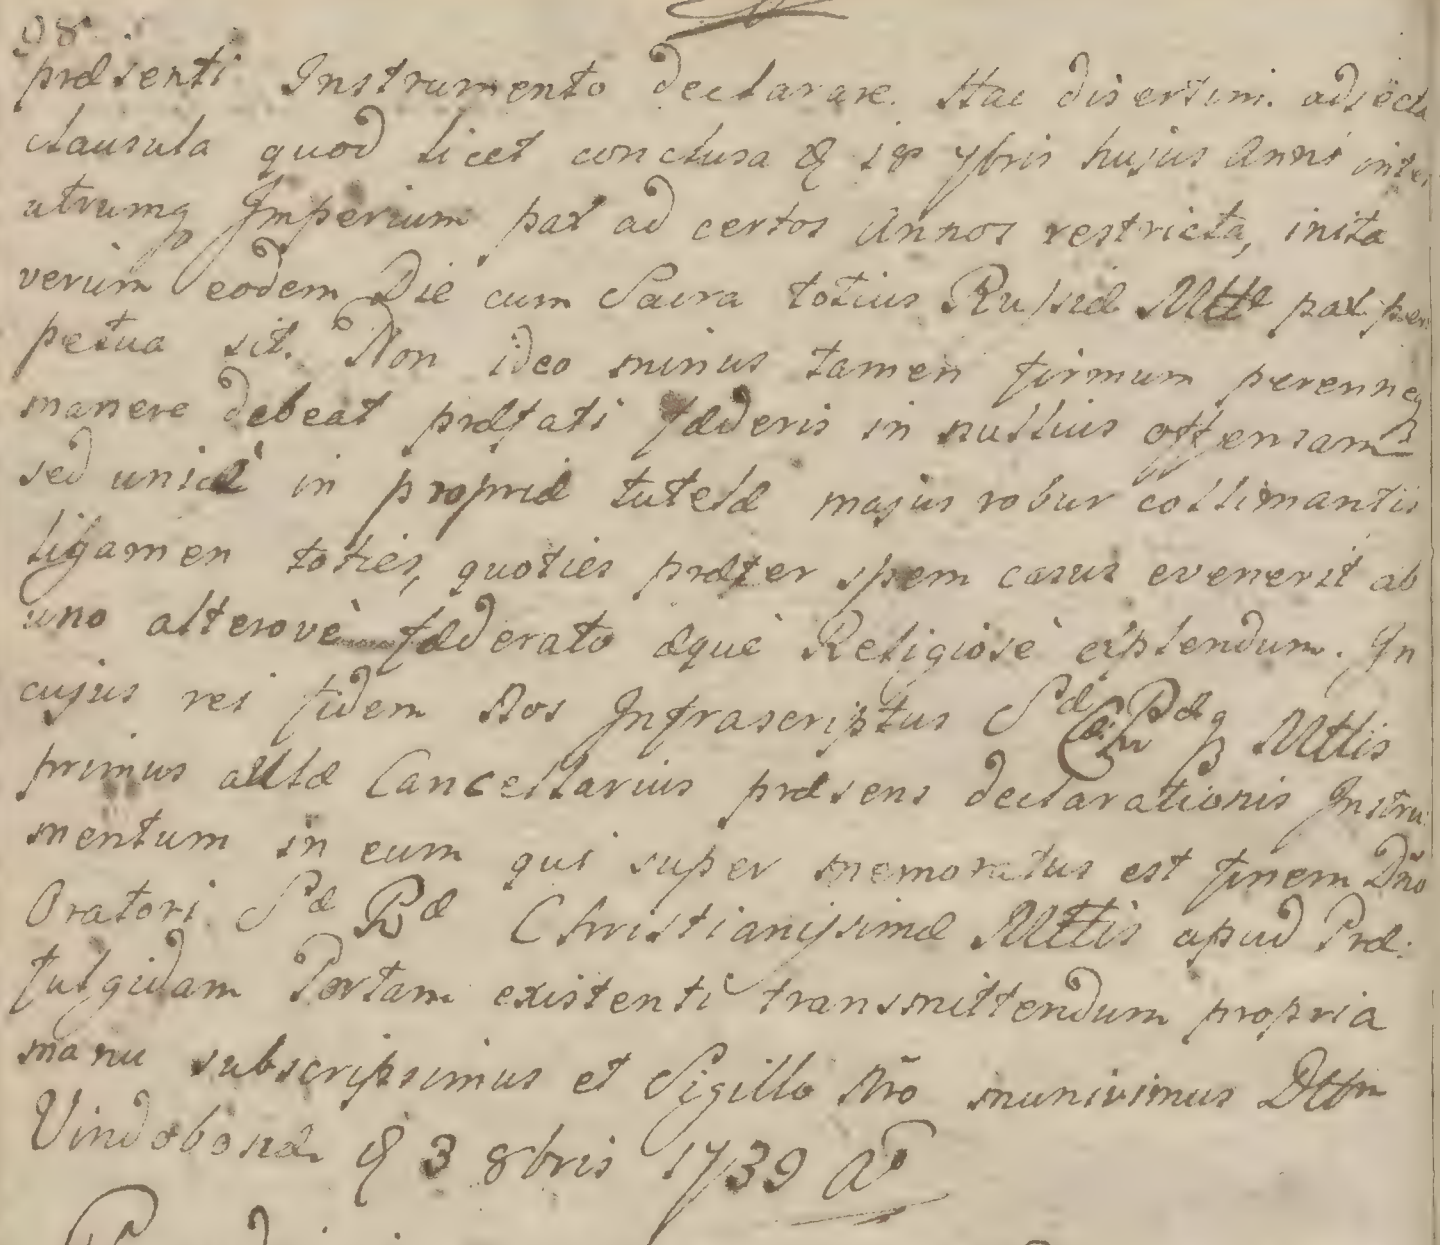 98.
præsenti Instrumento declarare. Hac disertim. adjecta
clausula quod licet conclusa d 18 7bris hujus Anni inter
utrumq Imperium pax ad certos Annos restricta, inita
verum eodem Die cum Sacra totius Russiæ Mtte pax per
petua sit. Non ideo minus tamen firmum perenneq
manere debeat præfati fæderis in nullius offensam
sed unicè in propriæ tutelæ majus robur collimantis
ligamen toties, quoties præter spem casus evenerit ab
uno alterovè fæderato æquè Religiosè eiplendum. In
cujus rei fidem Nos Infrascriptus Sæ Mttis
primus aulæ Cancellarius præsens declarationis Instru:
mentum in eum qui super memoratus est finem Dño
Oratori Sæ Ræ Christianissimæ Mttis apud Præ:
fulgidam Portam existenti transmittendum propria
manu subscripsimus et Sigillo Nrõ munivimus Dttm
Vindobonæ d 3 8bris 1739 Aº